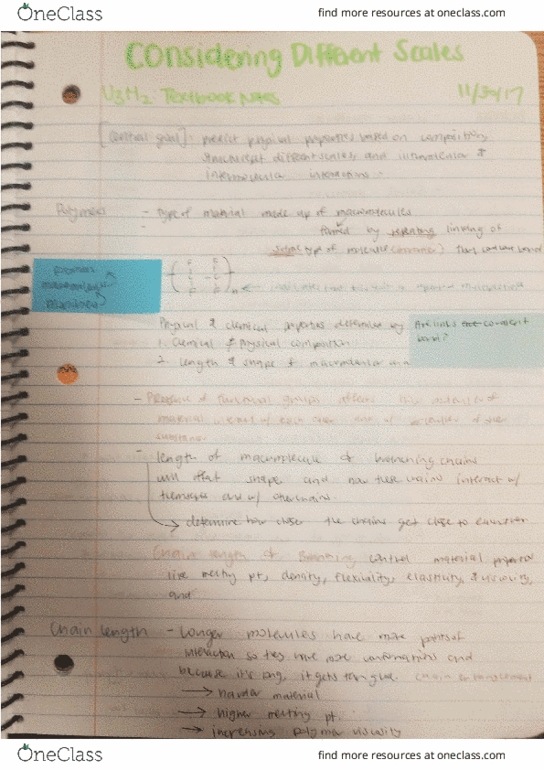 OneClass
find more resources at oneclass.com
Considering Different Scales
U3M2 Textbook Notes
[central goal]: predict physical properties based on composition
structure at different scales, and
intermolecular interactions.
Polymers - Type of material made up of macromolecules
formed by repeating linking of
type of molecule (monomer) that
Physical & chemical properties determined by
1. Chemical & physical composition
2. length & shape of macromolecular
Are links the covalent
bond?
- Presence of functional groups affects how molecules of
material interact w/ each other and w/ molecules of other
substances
- length of macromolecule & branching chains
will affect shape and how these chains interact w/
themselves and w/ other chains.
→ determine how close the chains get close to each other
Chain length & Branching control material properties
like melting pt, density, flexibility, elasticity, & viscosity,
and
Chain length - Longer molecules have more points of
interaction so they have more conformations and
because it's long, it gets tangled. chain entanglement
→ harder material
→ higher melting pt.
→ increasing polymer viscosity
OneClass
find more resources at oneclass.com